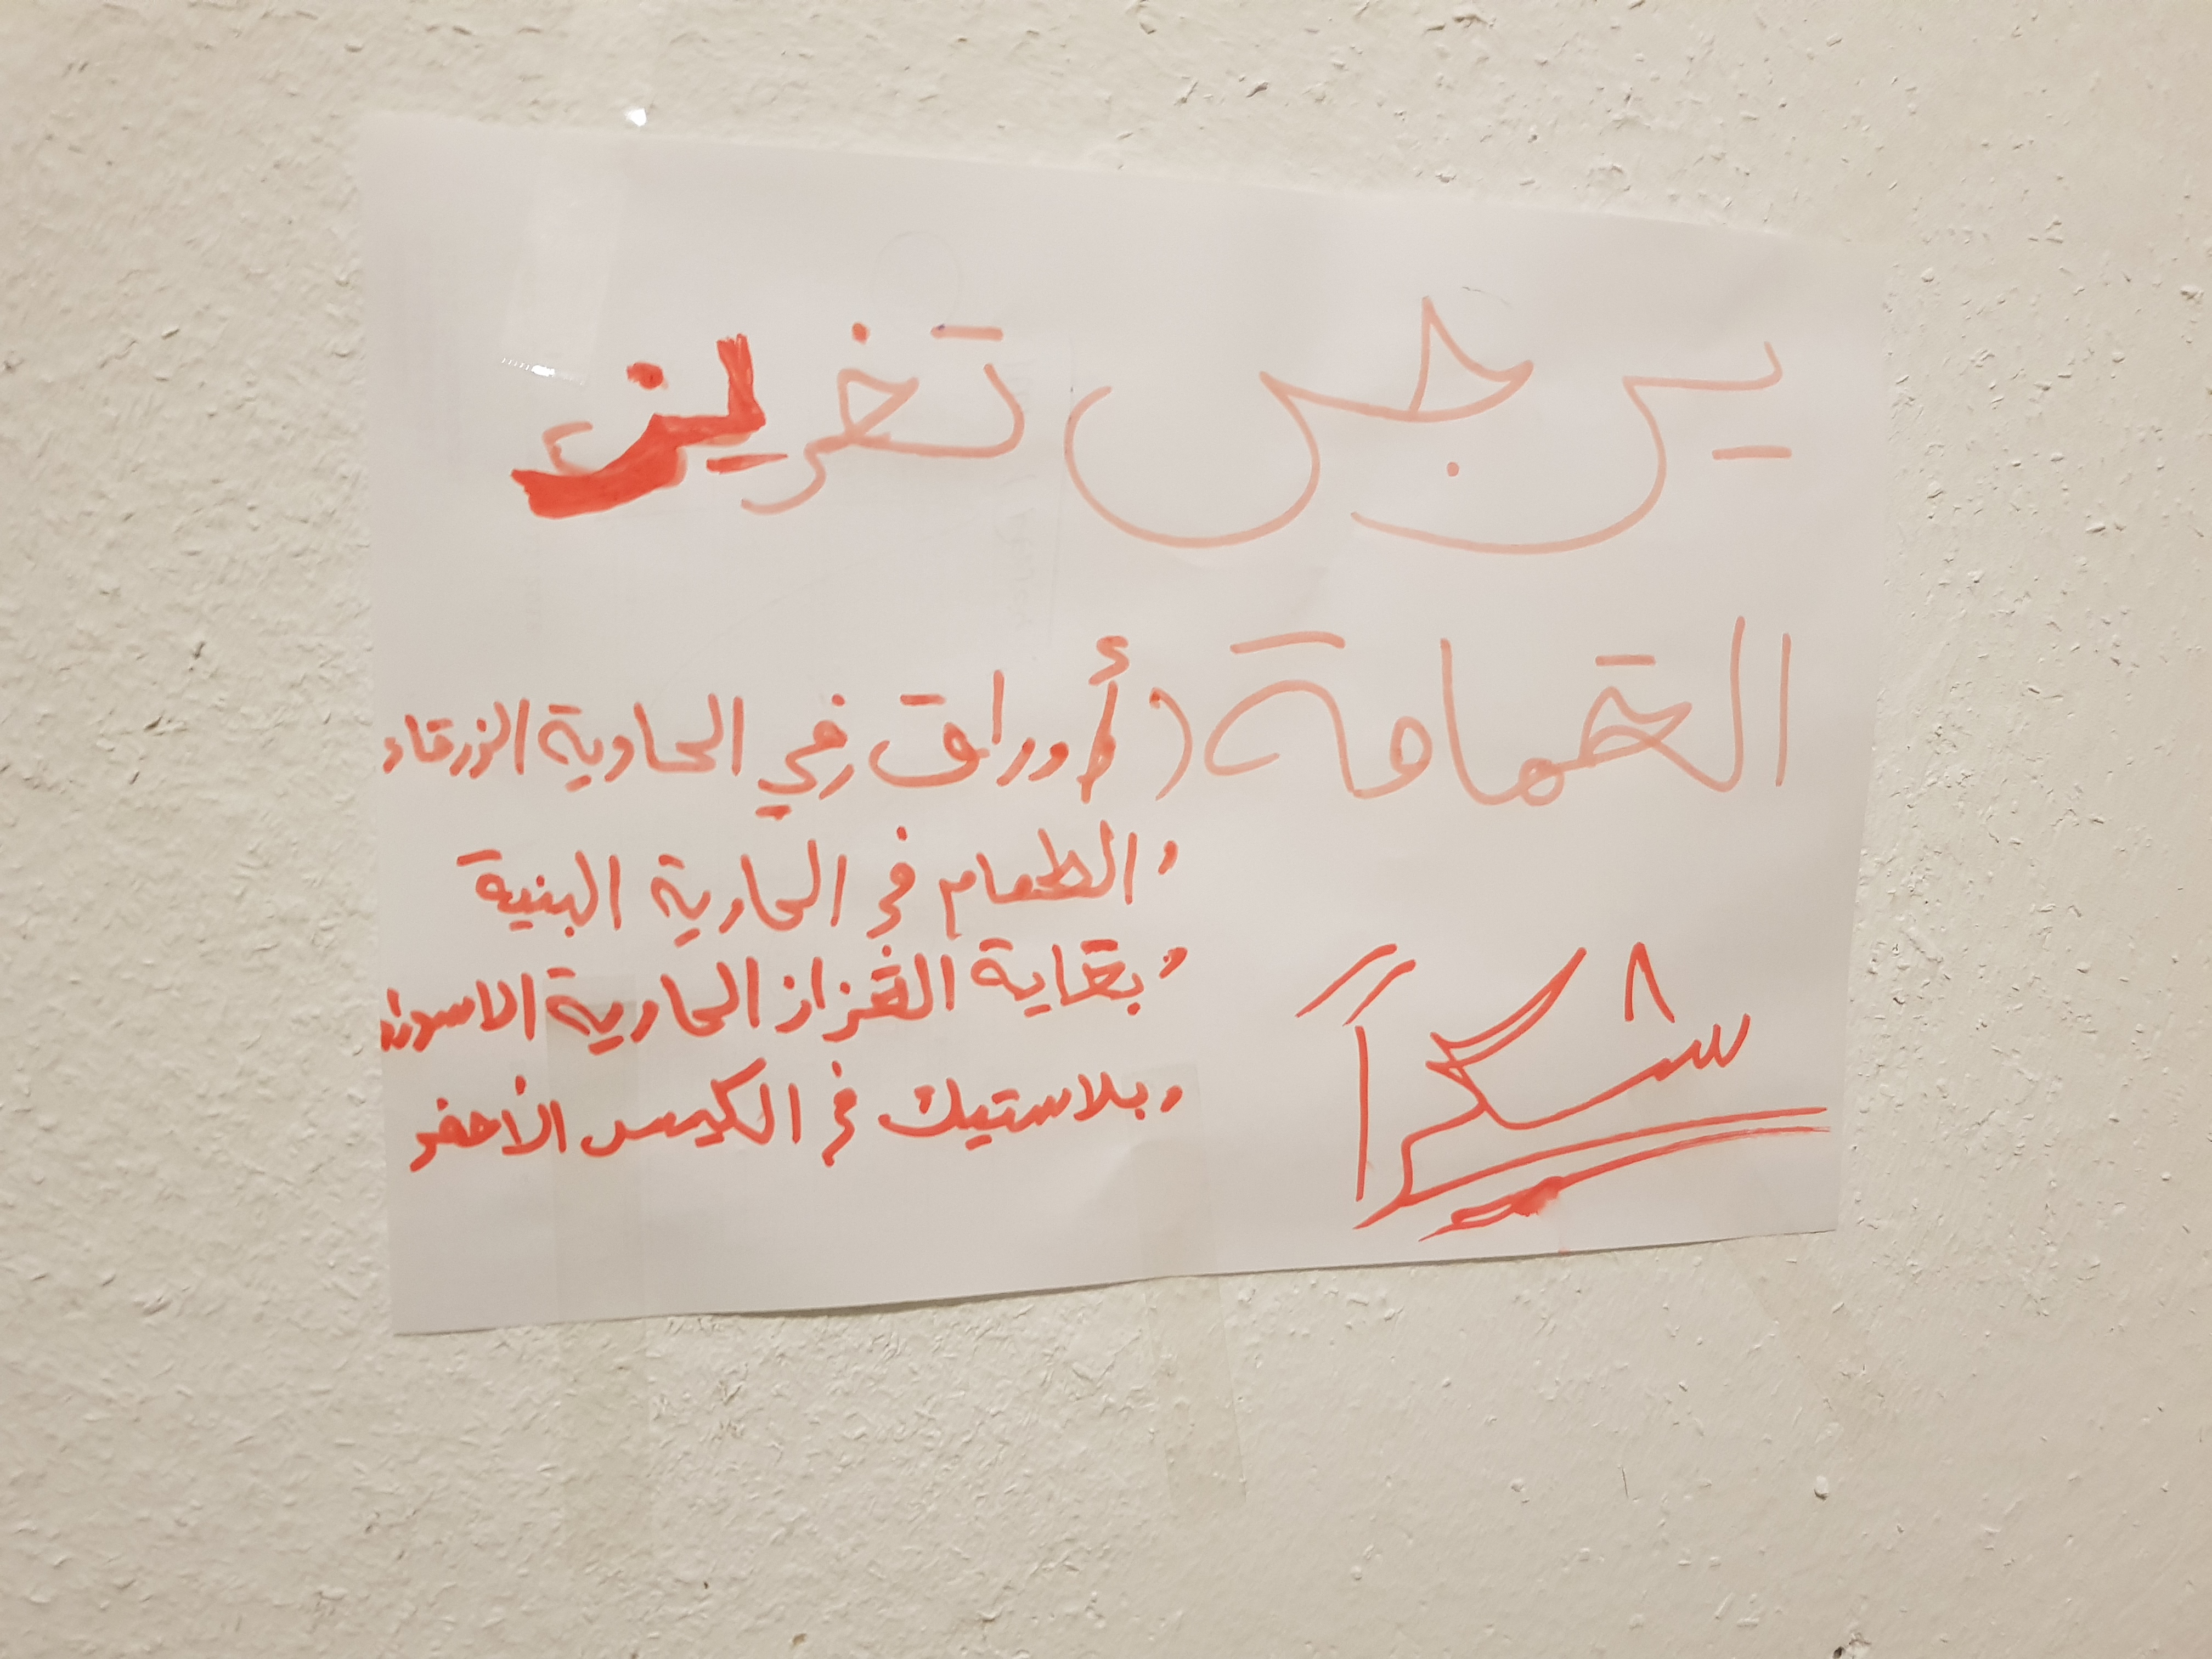 يرجى تخريز
القمامة (أوراق في الحاوية الزرقاء
، الطعام في الحاوية البنية
، بقاية القزاز الحاوية الاسوداء
، بلاستيك في الكيس الأصفر
شكراً